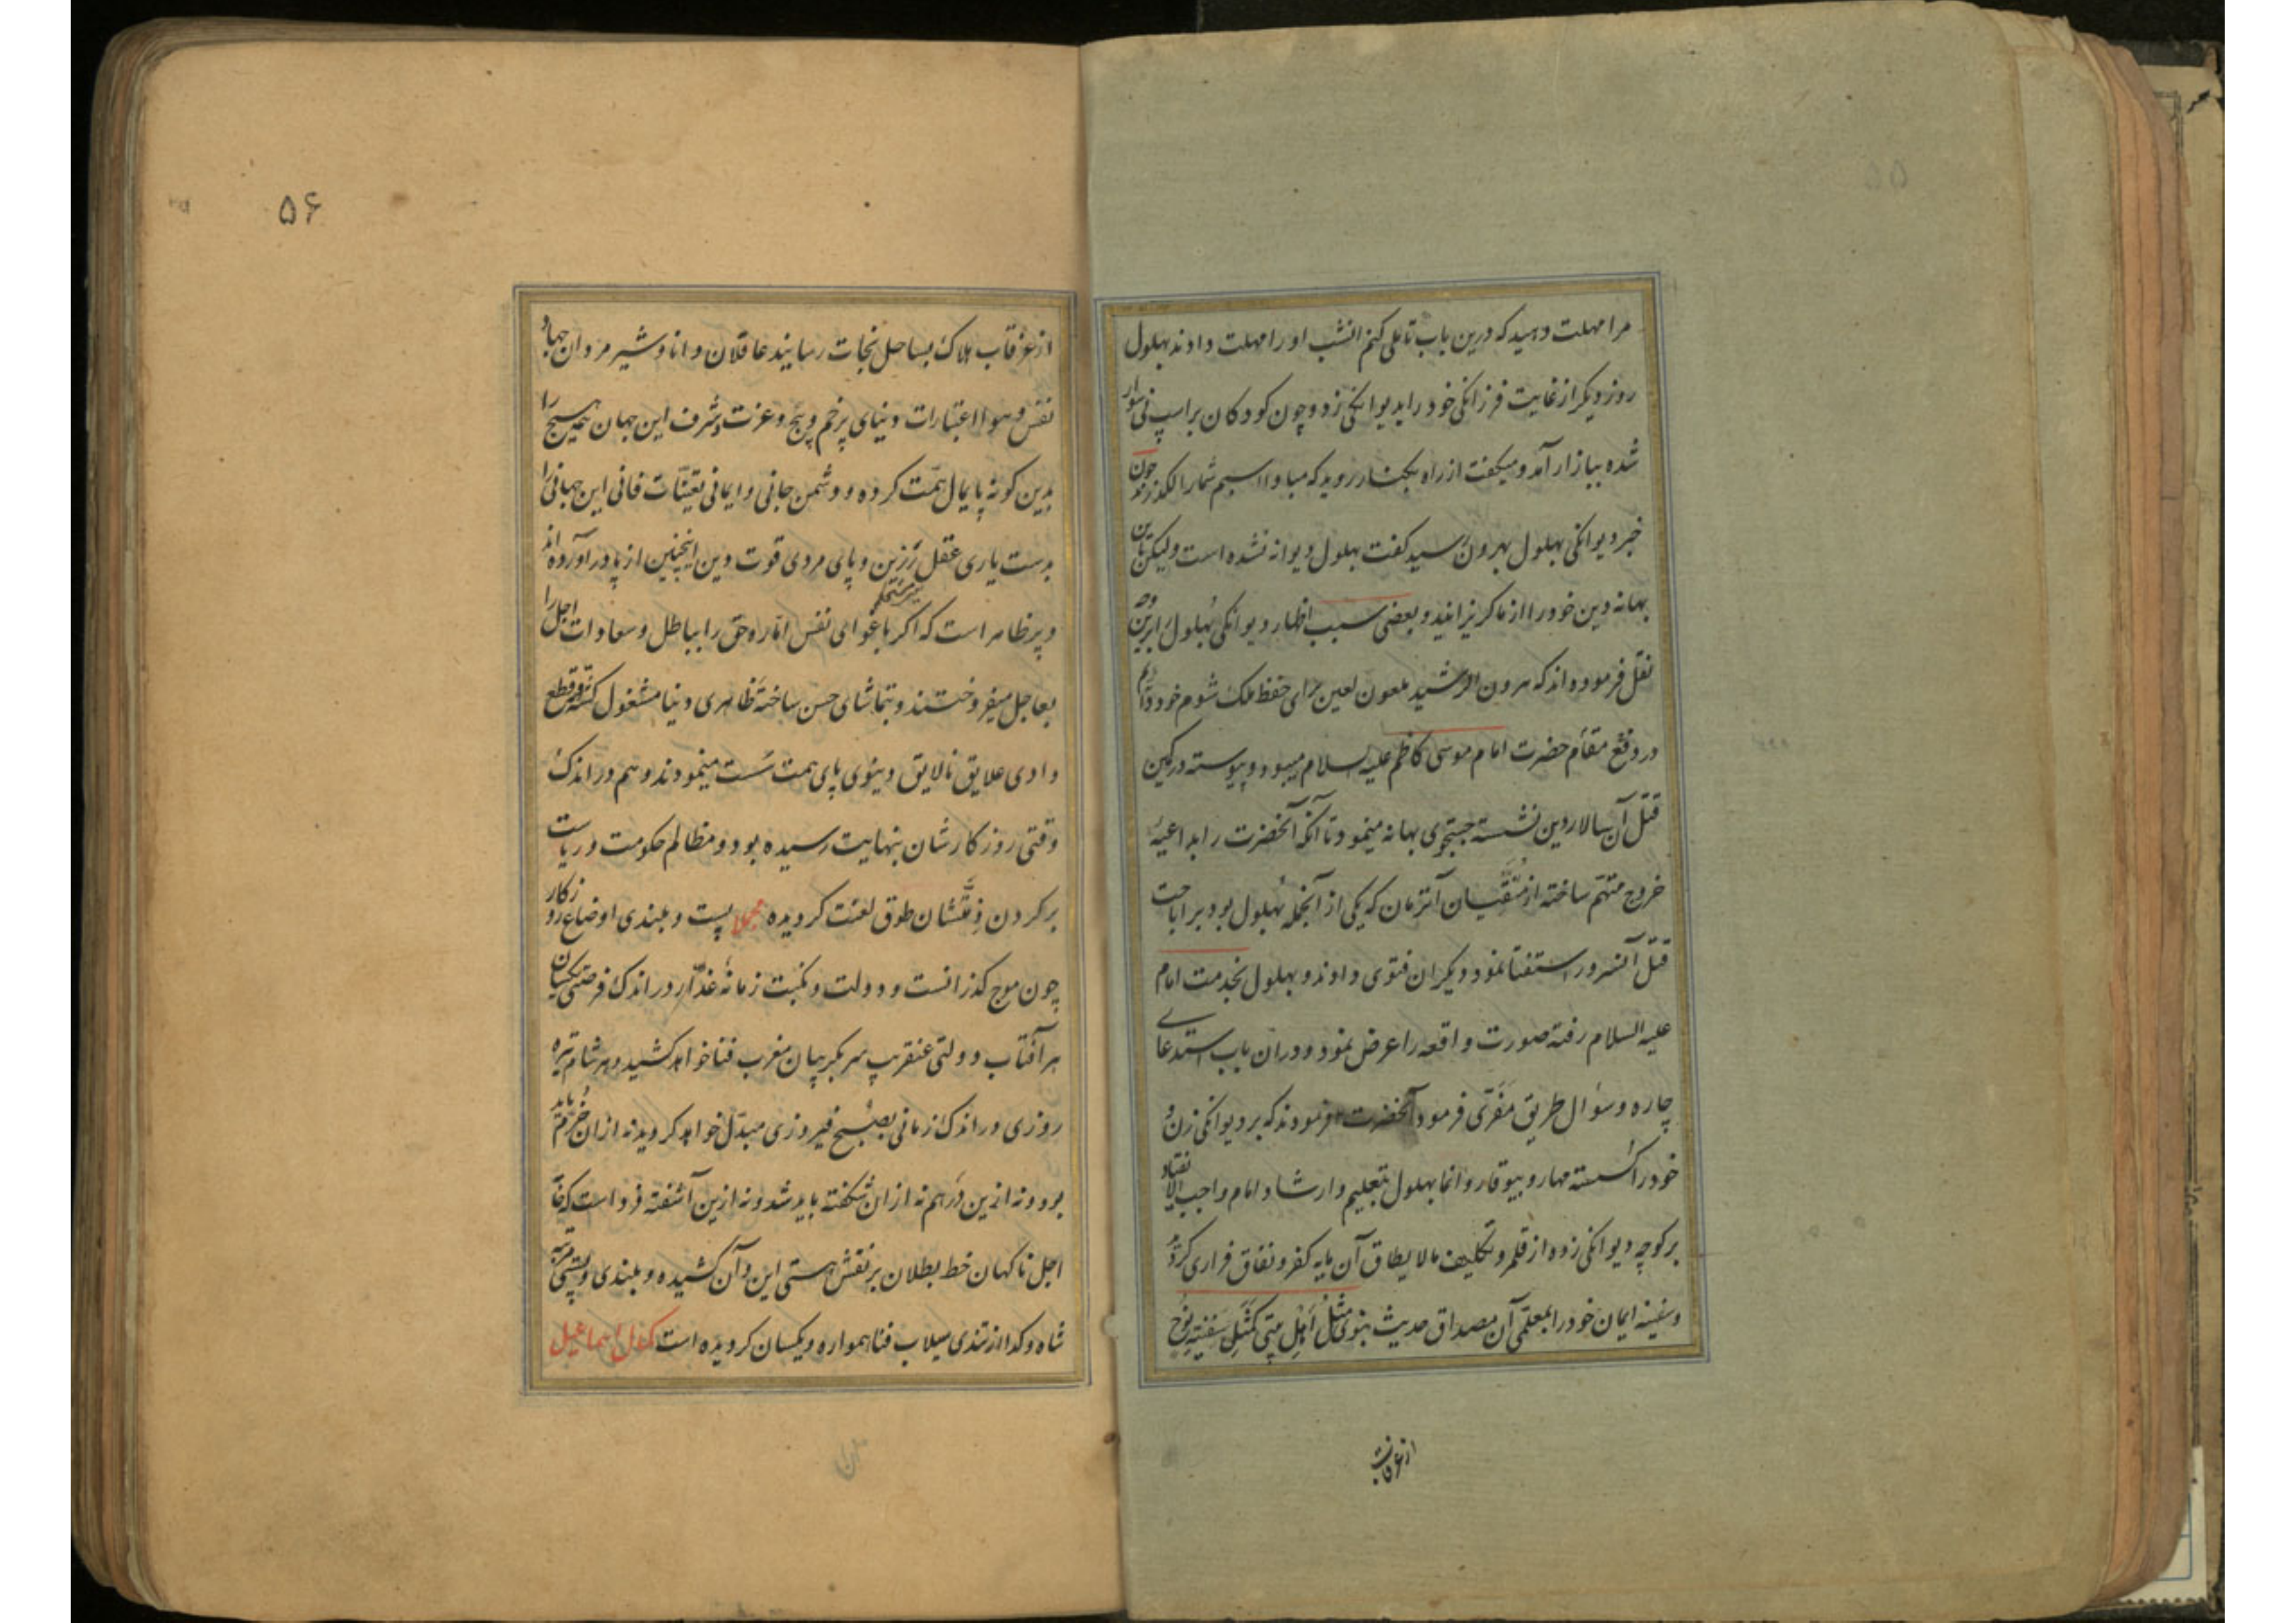 مرا مهلت دهید که درین باب تاملی کنم انشب او را مهلت دادند بهلول
روز دیگر از غایت فرزانگی خود را بدیوانگی زد و چون کودکان بر اسپ نی سوار
شده ببازار آمد و میگفت از راه بکنار روید که مبادا اسبم شما را لگد زند چون
خبر دیوانگی بهلول بهرون رسید گفت بهلول دیوانه نشده است ولیکن باین
بهانه دین خود را از ما گریزانید و بعضی سبب اظهار دیوانگی بهلول برین وجه
نقل فرموده‌اند که هرون الرشید ملعون لعین برای حفظ ملک شوم خود دایم
در دفع مقام حضرت امام موسی کاظم علیه السلام میبود و پیوسته در کمین
قتل آن سالار دین نشسته جستجوی بهانه مینمود تا آنکه آنحضرت را بداعیهٔ
خروج متهم ساخته از متقیان آنزمان که یکی از آنجمله بهلول بود بر اباحت
قتل آنسرور استفتا نمود دیگران فتوی دادند و بهلول بخدمت امام
علیه السلام رفته صورت واقعه را عرض نمود و دران باب استدعای
چاره و سؤال طریق مفری فرمود آنحضرت فرمودند که بر دیوانگی زن و
خود را گسسته مهار و بیوقار وانما بهلول بتعلیم و ارشاد امام واجب الانقیاد
بر کوچه دیوانگی زده از قلمرو تکلیف مالایطاق آن مایه کفر و نفاق فراری کردند
و سفینه ایمان خود را بمعلمی آن مصداق حدیث نبوی مثل اهل بیتی کمثل سفینة نوح
از غرقاب
۵۶
از غرقاب هلاک بساحل نجات رسانیند عاقلان دانا و شیر مردان جهاد
نفس و هوا اعتبارات دنیای پرخم و پیچ و عزت و شرف این جهان همین هیچ را
بدین کونه پایمال همت کرده و دشمن جانی و ایمانی تعینات فانی این جهانی را
بدست یاری عقل رزین و پای مردی قوت دین اینچنین از پا در آورده‌اند
و پر ظاهر است که اگر باغوای نفس اماره حق را بباطل و سعادات اجل را
بعاجل میفروختند و بتماشای حسن ساختهٔ ظاهری دنیا مشغول گشته در قطع
وادی علایق نالایق دنیوی پای همت سست مینمودند و هم در اندک
وقتی روزگارشان بنهایت رسیده بود و مظالم حکومت و ریاست
بر گردن ذمتشان طوق لعنت گردیده مجملا پست و بلندی اوضاع روزگار
چون موج گذرانست و دولت و نکبت زمانهٔ غدار در اندک فرصتی یکسان
هر آفتاب دولتی عنقریب سر بگریبان مغرب فنا خواهد کشید و هر شام تیره
روزی در اندک زمانی بصبح فیروزی مبدل خواهد گردید نه ازان خرم باید
بود و نه ازین درهم نه ازان شگفته باید شد و نه ازین آشفته فرداست که خا
اجل ناگهان خط بطلان بر نقش هستی این و آن کشیده و بلندی و پستی مرتبه
شاه و گدا از تندی سیلاب فنا هموار و یکسان گردیده است